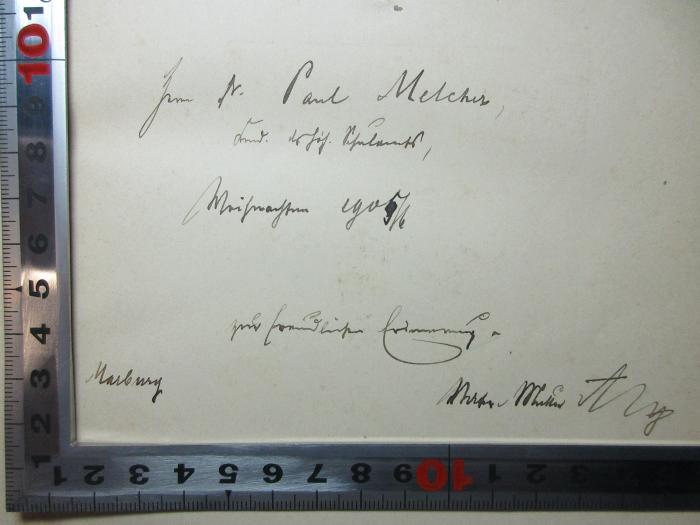 Herrn Dr. Paul Melcher,
Kand. des höh. Schulamts,
Weihnachten 1905/6
zur freundlichen Erinnerung.
Marburg
10
9
8
7
6
5
4
3
2
1
2 1 1 2 3 4 5 6 7 8 9 10 1 2 3